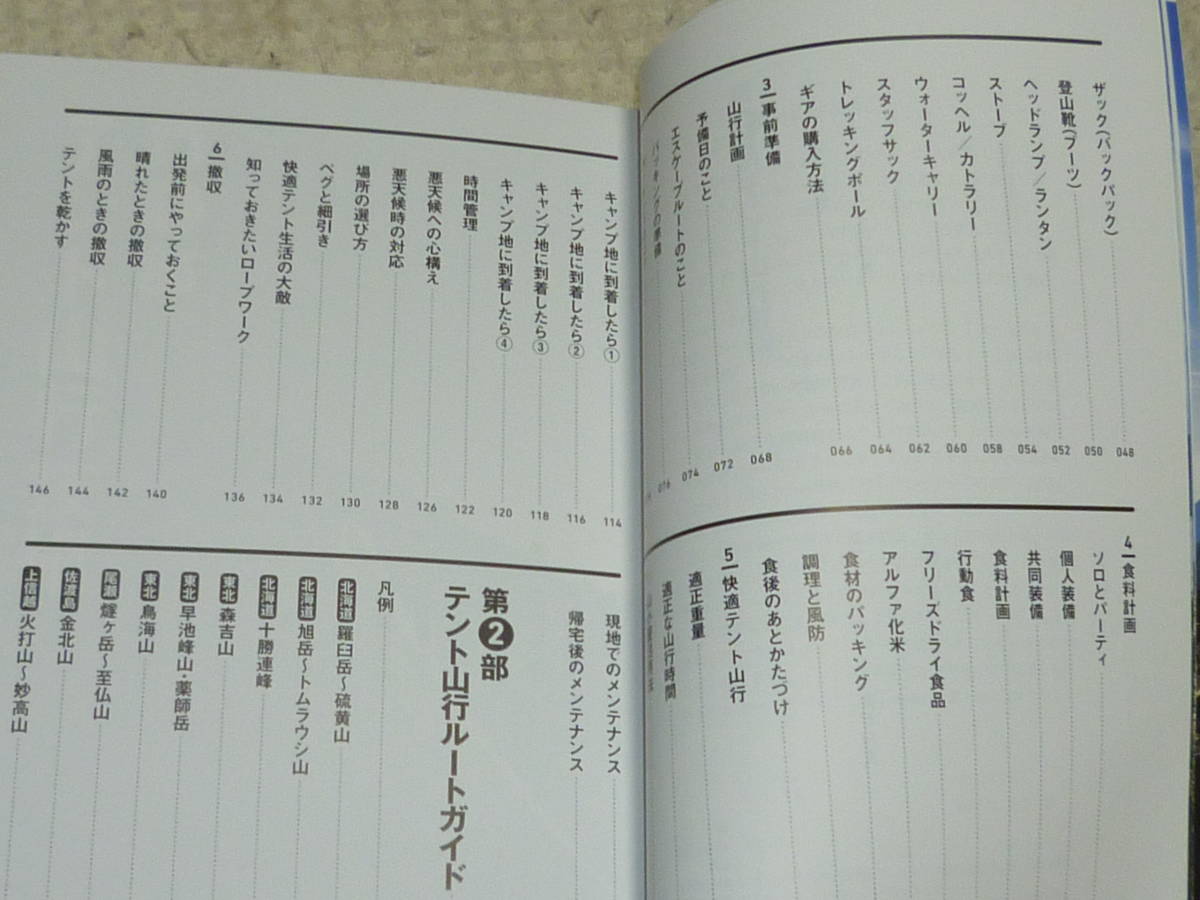 ザック(バックパック) 048
登山靴(ブーツ) 050
ヘッドランプ/ランタン 052
ストーブ 054
コッヘル/カトラリー 058
ウォーターキャリー 060
スタッフサック 062
トレッキングポール 064
ギアの購入方法 066
3 事前準備
山行計画 068
予備日のこと 072
エスケープルートのこと 074
パッキングの準備 076
4 食料計画
ソロとパーティ
個人装備
共同装備
食料計画
行動食
フリーズドライ食品
アルファ化米
食材のパッキング
調理と風防
食後のあとかたづけ
5 快適テント山行
適正重量
適正な山行時間
キャンプ地に到着したら① 114
キャンプ地に到着したら② 116
キャンプ地に到着したら③ 118
キャンプ地に到着したら④ 120
時間管理 122
悪天候への心構え 126
悪天候時の対応 128
場所の選び方 130
ペグと細引き 132
快適テント生活の大敵 134
知っておきたいロープワーク 136
6 撤収
出発前にやっておくこと 140
晴れたときの撤収 142
風雨のときの撤収 144
テントを乾かす 146
現地でのメンテナンス
帰宅後のメンテナンス
第2部
テント山行ルートガイド
凡例
北海道 羅臼岳〜硫黄山
北海道 旭岳〜トムラウシ山
北海道 十勝連峰
東北 森吉山
東北 早池峰山・薬師岳
東北 鳥海山
尾瀬 燧ヶ岳〜至仏山
佐渡島 金北山
上信越 火打山〜妙高山